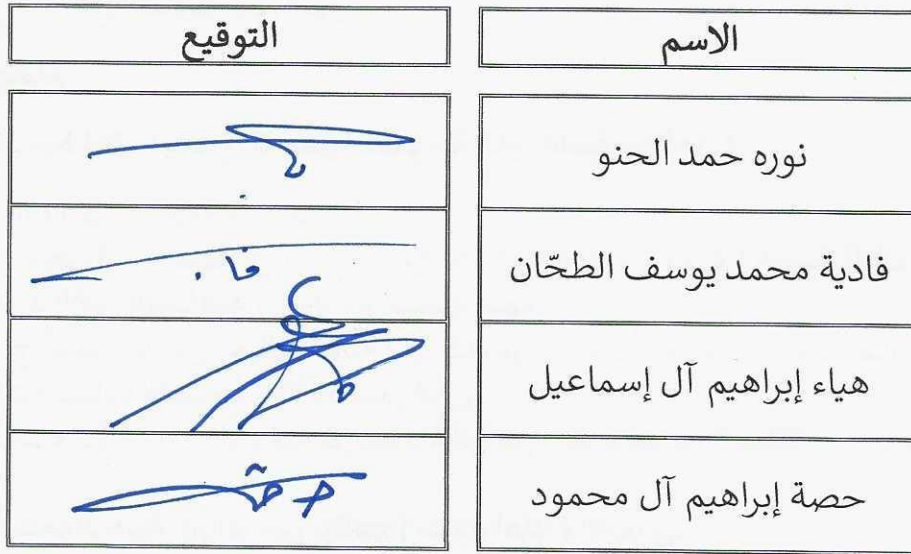 الاسم التوقيع
نوره حمد الحنو
فادية محمد يوسف الطحّان
هياء إبراهيم آل إسماعيل
حصة إبراهيم آل محمود